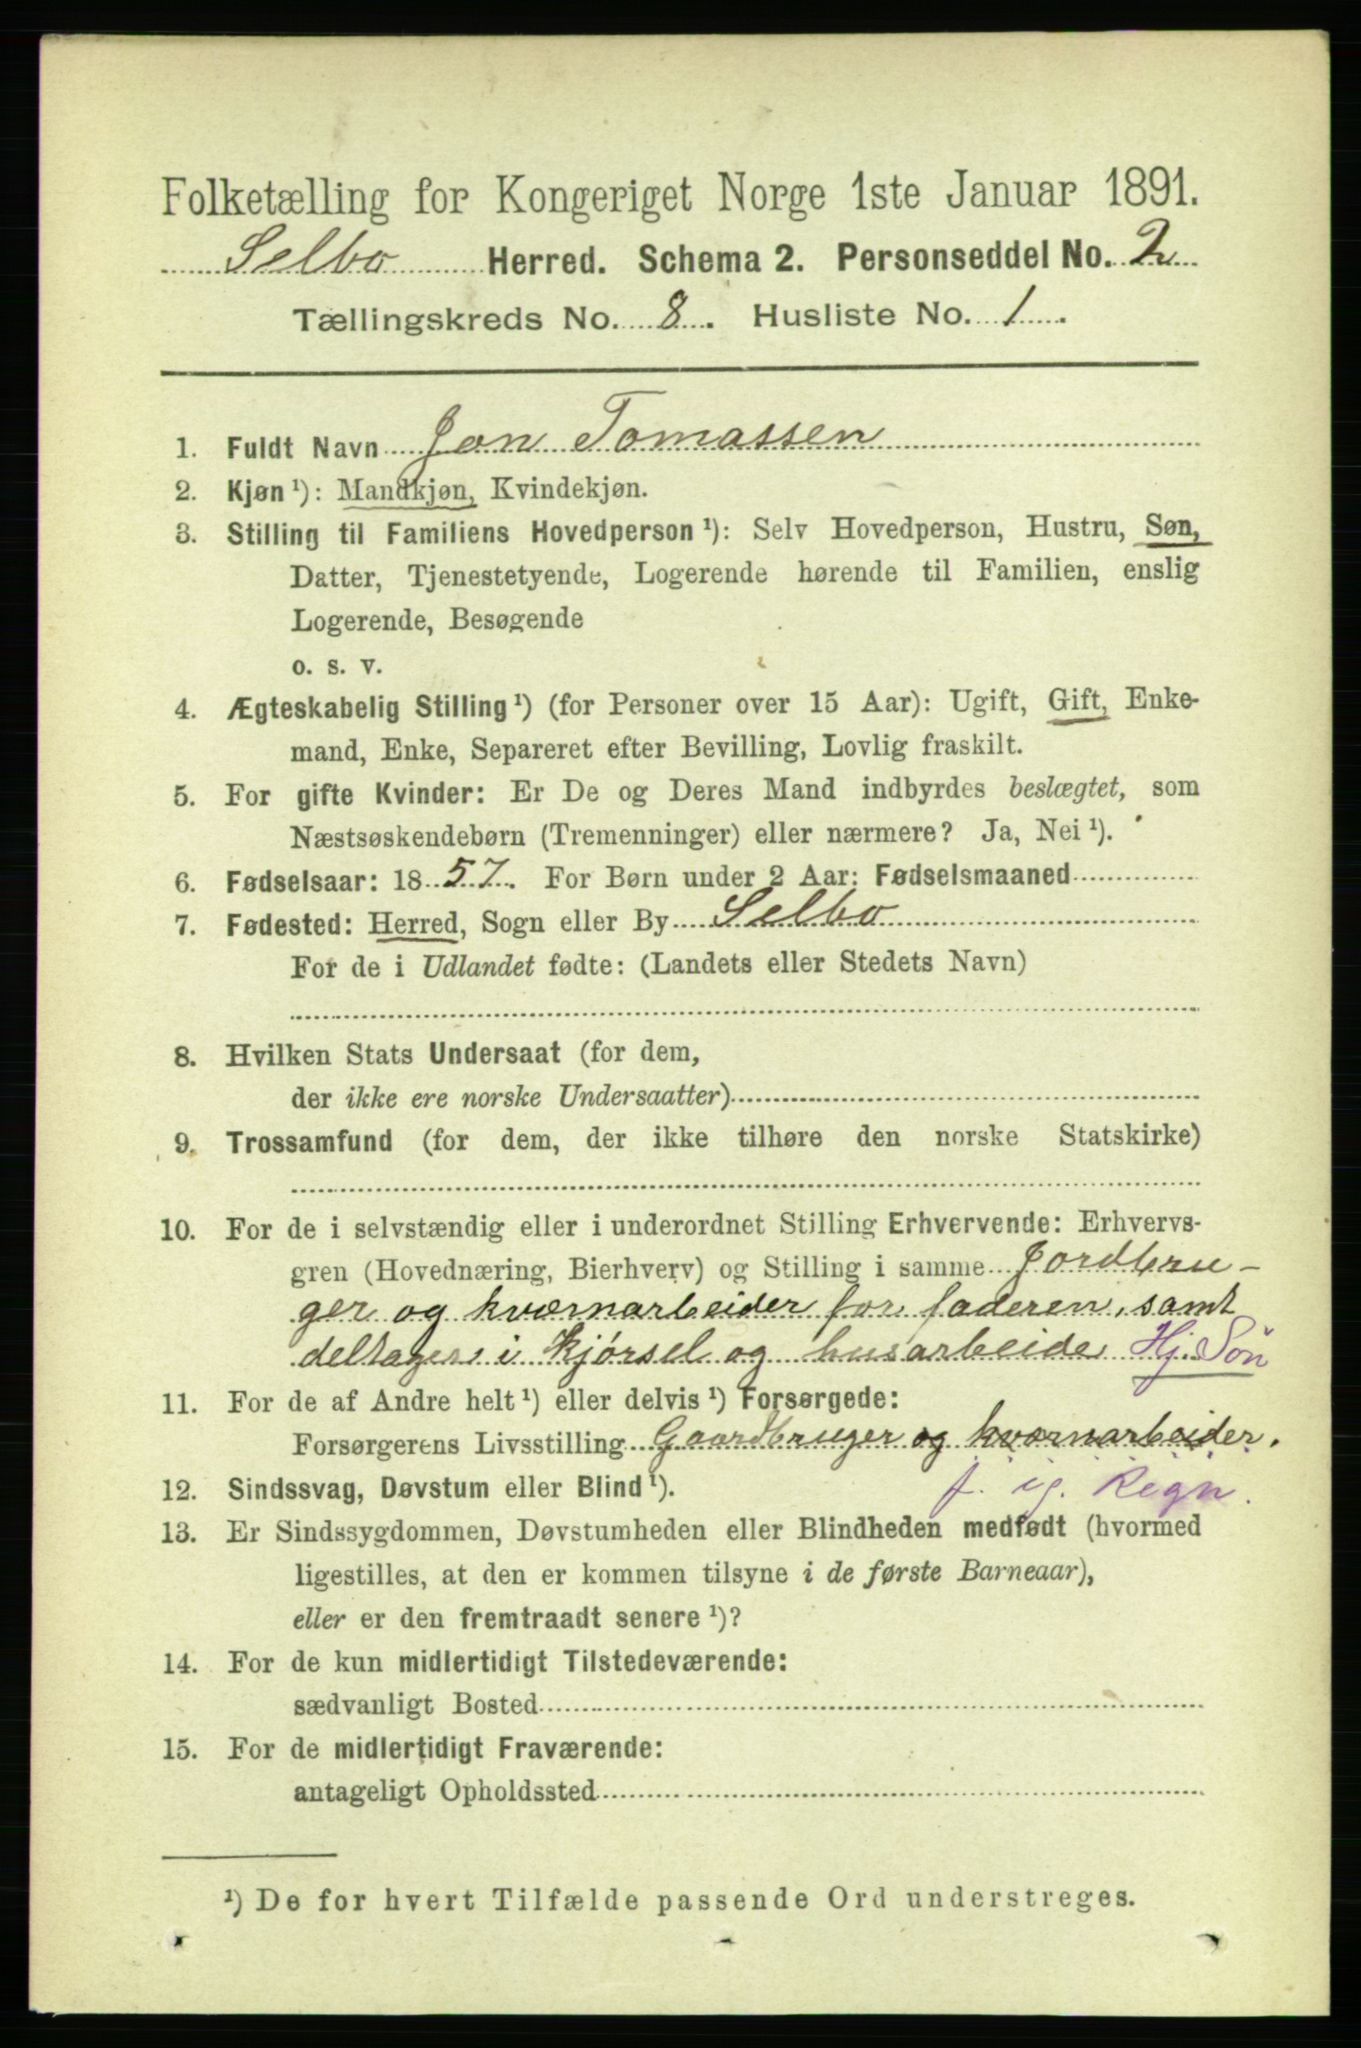 Folketælling for Kongeriget Norge 1ste Januar 1891.
Selbo Herred. Schema 2. Personseddel No. 2
Tællingskreds No. 8. Husliste No. 1.
1. Fuldt Navn Jon Tomassen
2. Kjøn ¹): Mandkjøn, Kvindekjøn.
3. Stilling til Familiens Hovedperson ¹): Selv Hovedperson, Hustru, Søn,
Datter, Tjenestetyende, Logerende hørende til Familien, enslig
Logerende, Besøgende
o. s. v.
4. Ægteskabelig Stilling ¹) (for Personer over 15 Aar): Ugift, Gift, Enke-
mand, Enke, Separeret efter Bevilling, Lovlig fraskilt.
5. For gifte Kvinder: Er De og Deres Mand indbyrdes beslægtet, som
Næstsøskendebørn (Tremenninger) eller nærmere? Ja, Nei ¹).
6. Fødselsaar: 1857. For Børn under 2 Aar: Fødselsmaaned
7. Fødested: Herred, Sogn eller By Selbo
For de i Udlandet fødte: (Landets eller Stedets Navn)
8. Hvilken Stats Undersaat (for dem,
der ikke ere norske Undersaatter)
9. Trossamfund (for dem, der ikke tilhøre den norske Statskirke)
10. For de i selvstændig eller i underordnet Stilling Erhvervende: Erhvervs-
gren (Hovednæring, Bierhverv) og Stilling i samme Jordbru-
ger og kværnarbeider for faderen, samt
deltager i kjörsel og husarbeide Hj. Sön
11. For de af Andre helt ¹) eller delvis ¹) Forsørgede:
Forsørgerens Livsstilling Gaardbruger og kværnarbeider.
f. ig. Regn.
12. Sindssvag, Døvstum eller Blind ¹).
13. Er Sindssygdommen, Døvstumheden eller Blindheden medfødt (hvormed
ligestilles, at den er kommen tilsyne i de første Barneaar),
eller er den fremtraadt senere ¹)?
14. For de kun midlertidigt Tilstedeværende:
sædvanligt Bosted
15. For de midlertidigt Fraværende:
antageligt Opholdssted
¹) De for hvert Tilfælde passende Ord understreges.